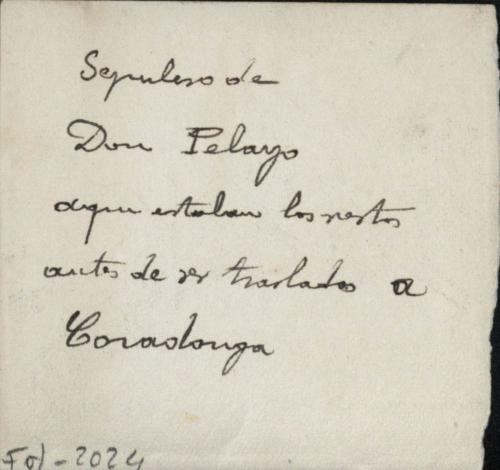 Sepulcro de
Don Pelayo
aqui estaban los restos
antes de ser traslados a
Covadonga
Fot-2024